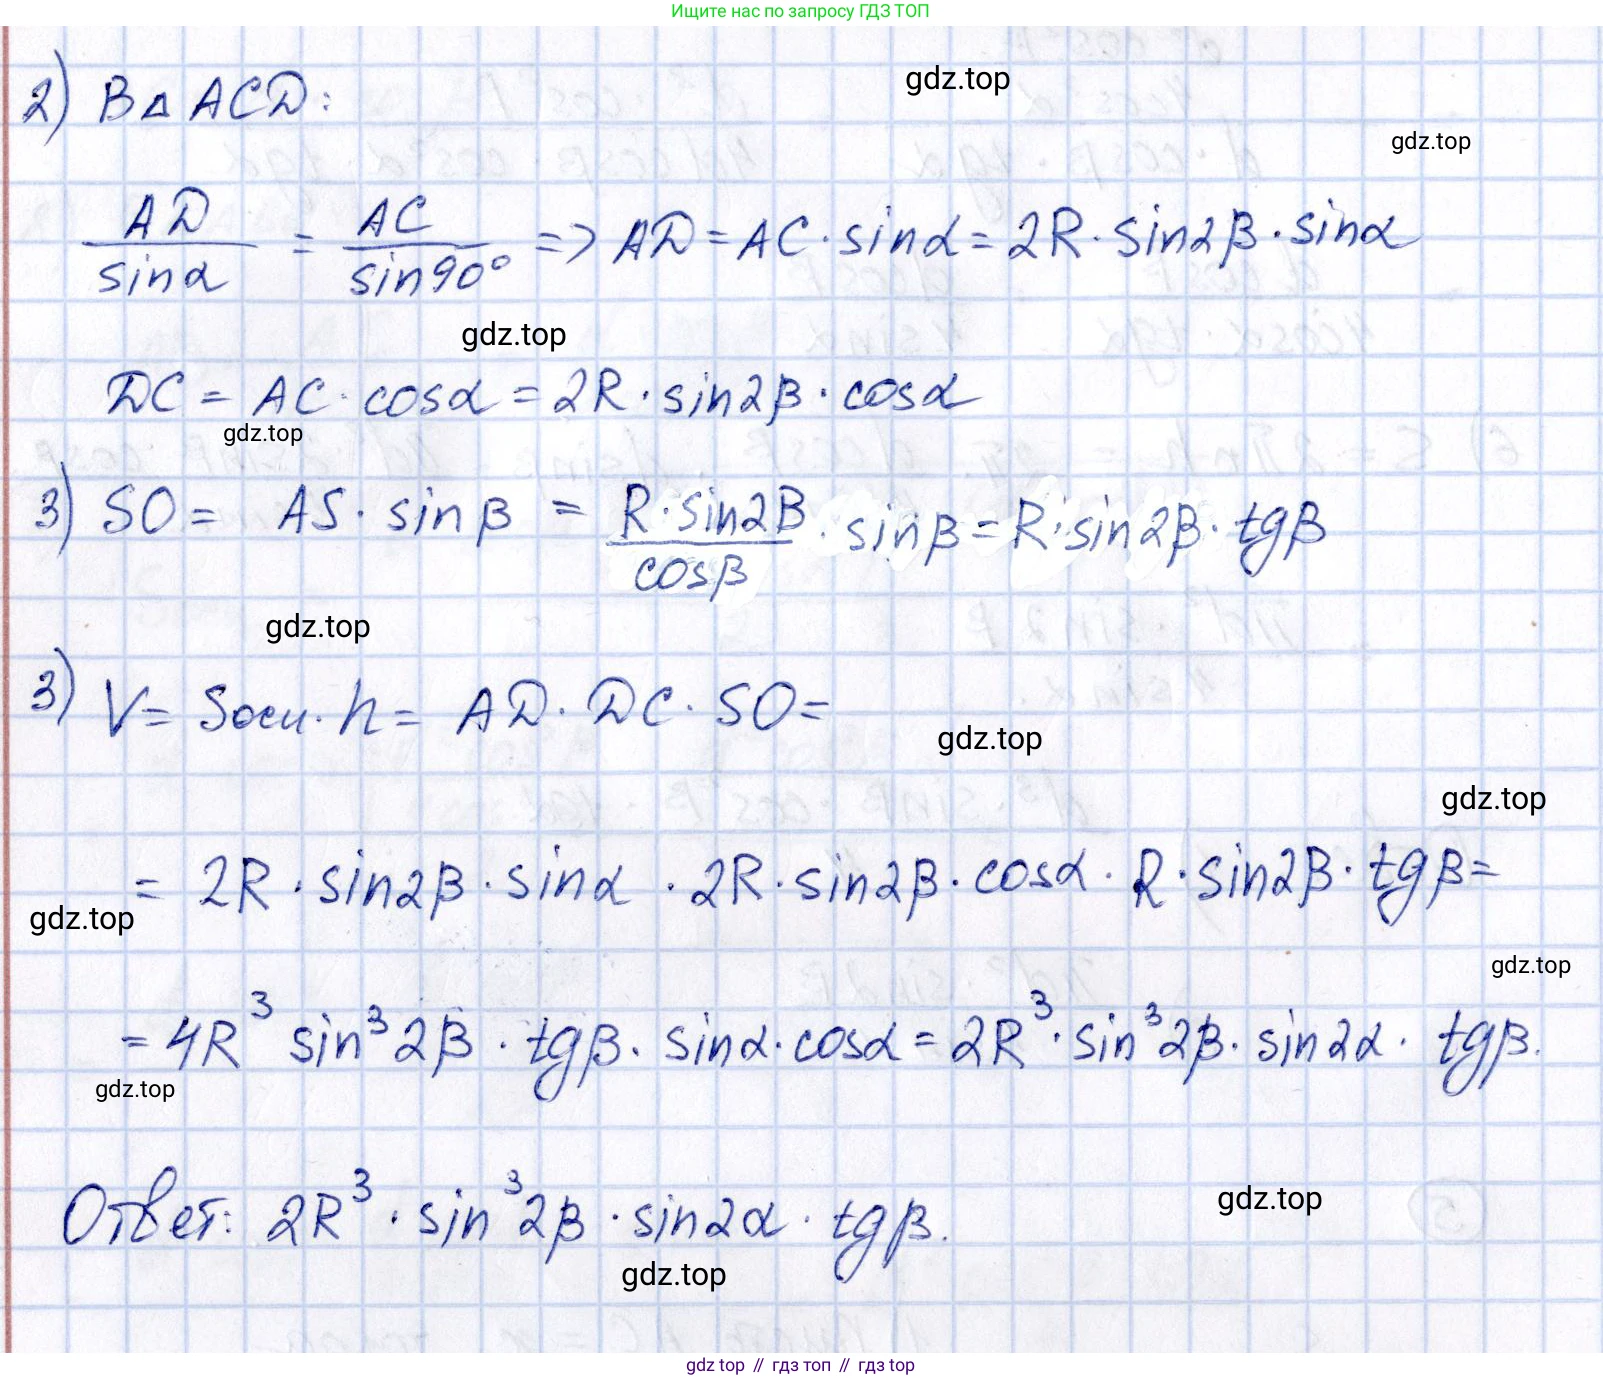 Ищите нас по запросу ГДЗ ТОП
2) В △ ACD:
gdz.top
gdz.top
AD/sinα = AC/sin90° => AD = AC · sinα = 2R · sin2β · sinα
gdz.top
DC = AC · cosα = 2R · sin2β · cosα
gdz.top
3) SO = AS · sinβ = R·sin2β/cosβ · sinβ = R·sin2β · tgβ
gdz.top
3) V = Sосн · h = AD · DC · SO =
gdz.top
gdz.top
= 2R · sin2β · sinα · 2R · sin2β · cosα · R · sin2β · tgβ =
gdz.top
gdz.top
= 4R³ sin³2β · tgβ · sinα · cosα = 2R³ · sin³2β · sin2α · tgβ.
gdz.top
Ответ: 2R³ · sin³2β · sin2α · tgβ.
gdz.top
gdz.top
gdz top // гдз топ // гдз top